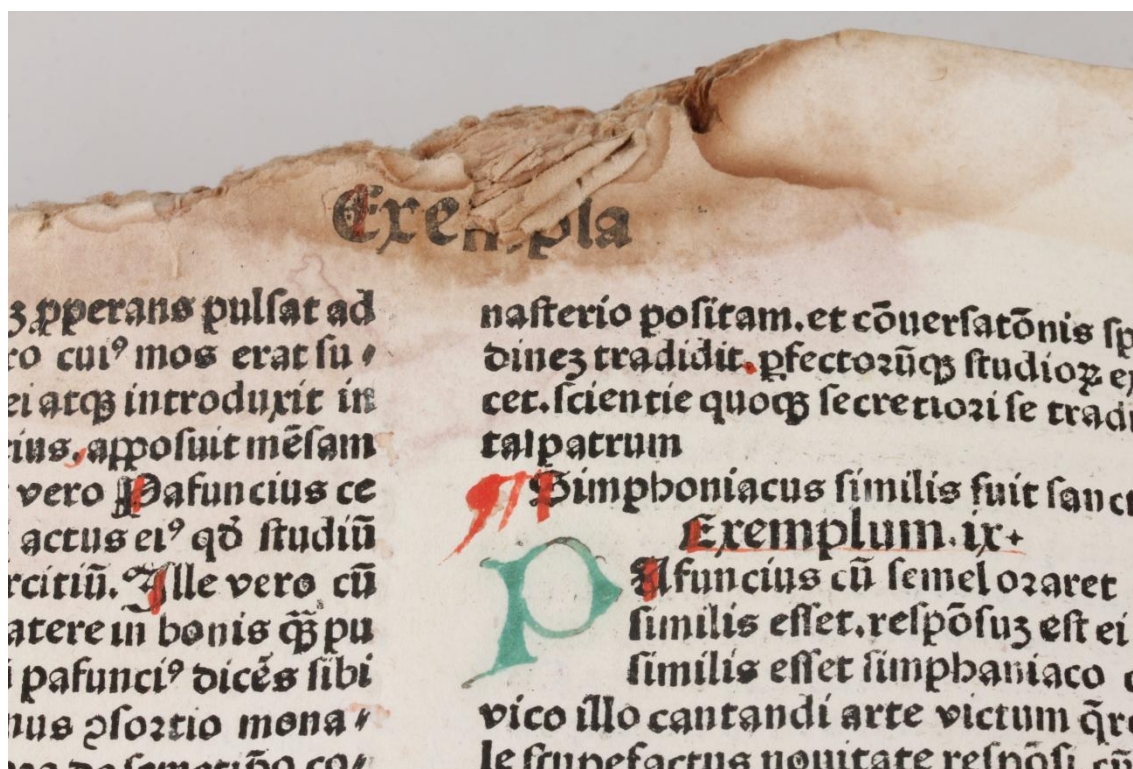 Exempla
ꝫ ꝓperans pulſat ad
ro cuiꝰ mos erat ſu⸗
ei atqꝫ introduxit in
cius, appoſuit mēſam
vero Pafuncius ce
actus eiꝰ qđ ſtudiū
rcitiū. Ille vero cū
atere in bonis q̄ꝫ pu
i pafunciꝰ dicēs ſibi
nus ꝯſortio mona⸗
naſterio poſitam. et cōuerſatōnis ſp
dinez tradidit. ꝑfectorūqꝫ ſtudioꝝ ex
cet. ſcientie quoqꝫ ſecretiori ſe tradi
tal patrum
¶ Simphoniacus ſimilis fuit ſanct
Exemplum. ix.
PAfuncius cū ſemel oraret
ſimilis eſſet. reſpōſuz eſt ei
ſimilis eſſet ſimphaniaco
vico illo cantandi arte victum q̄re
le ſtupefactus nouitate reſpōſi. cū